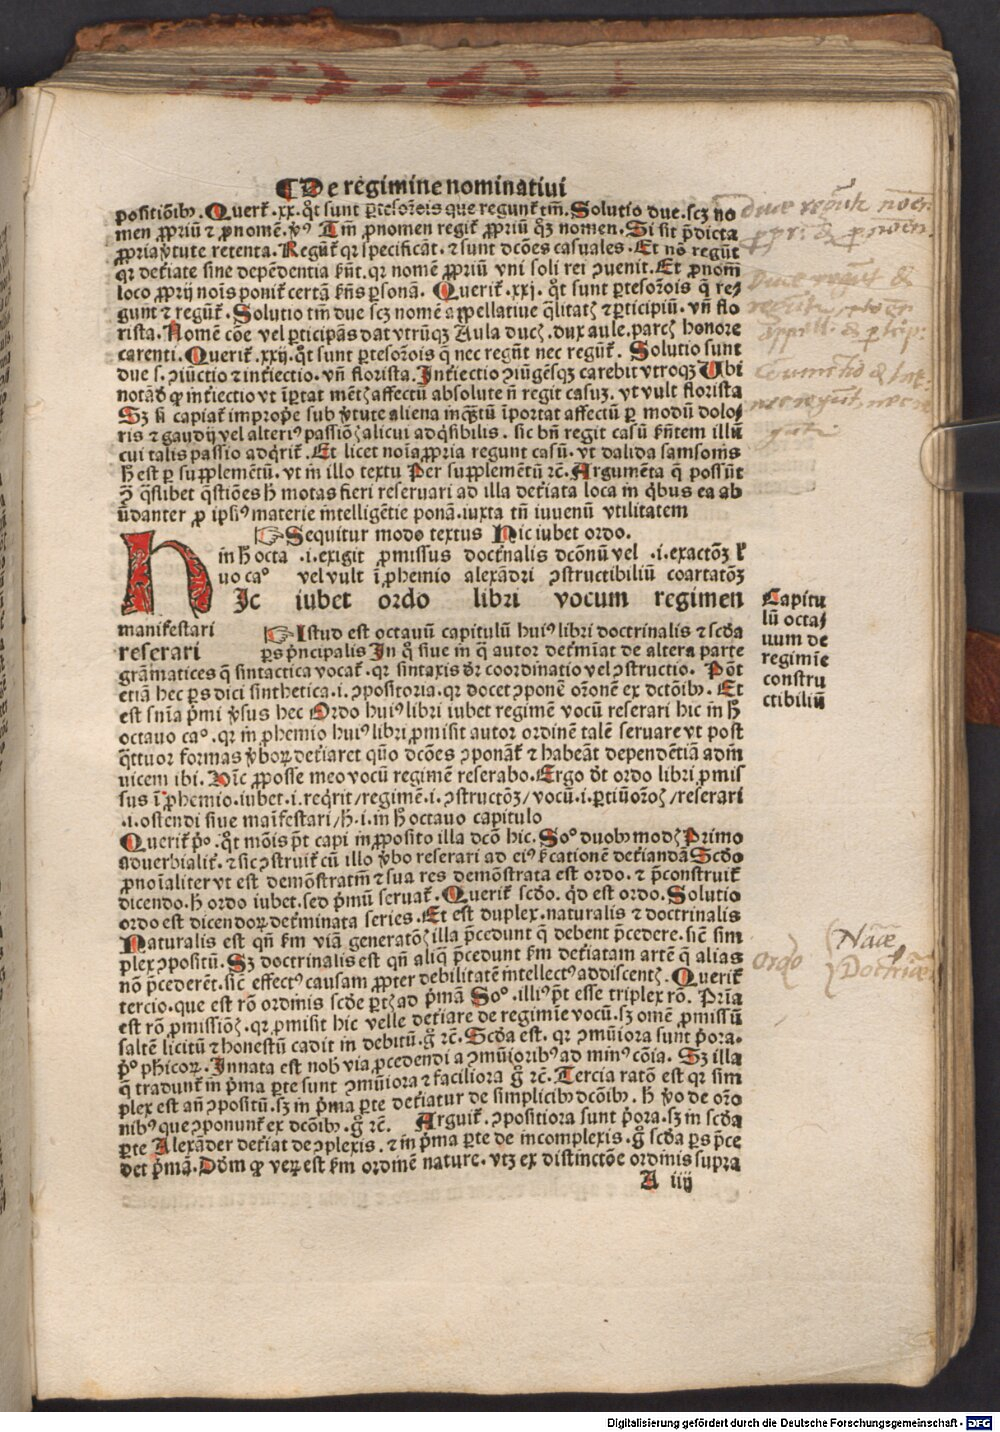 De regimine nominatiui
positiōibꝰ. Querit̄. xx. q̄t sunt ꝑtesoꝛōis que regunt̄ tm̄. Solutio due. scꝫ no
men ꝓpriū ⁊ ꝓnomē. Tm̄ ꝓnomen regit̄ ꝓpriū qꝫ nomen. Si sit p̄dicta
ꝓpria ꝟtute retenta. Regūt̄ qꝛ specificāt. ⁊ sunt dcōes casuales. Et nō regūt
qꝛ det̄iate sine depēdentia. qꝛ nomē ꝓpriū vni soli rei ꝯuenit. Et ꝓnom̄
loco ꝓprij nois ponit̄ certā ꝑsonā. Querit̄. xxj. q̄t sunt ꝑtesoꝛōis q̄ re⸗
gunt ⁊ regūt̄. Solutio tm̄ due scꝫ nomē appellatiue q̄litatꝭ ⁊ ꝑticipiū. vn̄ flo
rista. Nomē cōe vel ꝑticipās dat vtrūqꝫ Aula ducꝭ. dux aule. parcꝭ honore
carenti. Querit̄. xxij. q̄t sunt ꝑtesoꝛōis q̄ nec regūt nec regūt̄. Solutio sunt
due s. ꝯiūctio ⁊ int̄iectio. vn̄ florista. Int̄iectio ꝯiūgēsqꝫ carebit vtroqꝫ Ubi
notādū ꝙ int̄iectio vt īportat mētꝭ affectū absolute n̄ regit casuꝫ. vt vult florista
Sꝫ si capiat̄ improp̄e sub ꝟtute aliena inq̄ꝫtū īportat affectū ꝑ modū dolo⸗
ris ⁊ gaudij vel alteriꝰ passiōꝭ alicui adq̄sibilis. sic bn̄ regit casū illū
cui talis passio adq̄rit̄. Et licet noīa ꝓpria regunt casū. vt dalida samsonis
h̄ est ꝑ supplemētū. vt in illo textu Per supplemētū ⁊c̄. Argumēta q̄ possūt
ꝯ q̄slibet q̄stiōes h̄ motas fieri reseruari ad illa det̄iata loca in q̄bus ea ab
ūdanter ꝓ ipsiꝰ materie intelligētie ponā. iuxta tn̄ iuuenū vtilitatem
☞Sequitur modo textus Hic iubet ordo.
in h̄ octa .i. exigit ꝓmissus doctrīnalis dcōnū vel .i. exactōꝫ
uo caᵒ vel vult ī ꝓhemio alexādri ꝯstructibiliū coartatōꝫ
HIc iubet ordo libri vocum regimen
manifestari ☞Istud est octauū capitulū huiꝰ libri doctrinalis ⁊ scd̄a
reserari ꝑs p̄ncipalis In q̄ siue in q̄ autor det̄miat de altera parte
grāmatices q̄ sintactica vocat̄. qꝛ sintaxis dr̄ coordinatio vel ꝯstructio. Pōt
etiā hec ꝑs dici sinthetica .i. ꝯpositoria. qꝛ docet ꝯponē oꝛōnē ex dctōibꝰ. Et
est snīa p̄mi ꝟsus hec Ordo huiꝰ libri iubet regimē vocū reserari hic in h̄
octauo caᵒ. qꝛ in ꝓhemio huiꝰ libri ꝓmisit autor ordinē talē seruare vt post
q̄ttuor formas ꝟboꝝ det̄iaret quo dcōes ꝯponāt̄ ⁊ habeāt depēdētiā adin
uicem ibi. Hīc ꝓ posse meo vocū regimē reserabo. Ergo dt̄ ordo libri ꝓmis
sus ī ꝓhemio. iubet .i. req̄rit/regimē .i. ꝯstructōꝫ/vocū .i. ꝑtiū oꝛōꝭ/reserari
.i. ostendi siue maīfestari/h̄ .i. in h̄ octauo capitulo
Querit̄ pᵒ. q̄t mōis pt̄ capi in ꝓposito illa dcō hic. Soᵒ duobꝰ modꝭ Primo
aduerbialit̄. ⁊ sic ꝯstruit̄ cū illo ꝟbo reserari ad eiꝰ det̄iandā Scd̄o
ꝓnoīaliter vt est demōstratm̄ ⁊ sua res demōstrata est ordo. ⁊ p̄construit̄
dicendo. h̄ ordo iubet. sed p̄mū seruat̄. Querit̄ scd̄o. qd̄ est ordo. Solutio
ordo est dicendoꝝ det̄minata series. Et est duplex. naturalis ⁊ doctrinalis
Naturalis est qn̄ ẜm viā generatōꝭ illa p̄cedunt q̄ debent p̄cedere. sic̄ sim
plex ꝯpositū. Sꝫ doctrinalis est qn̄ aliq̄ p̄cedunt ẜm det̄iatam artē q̄ alias
nō p̄cederēt. sic̄ effectꝰ causam ꝓpter debilitatē intellectꝰ addiscentꝭ. Querit̄
tercio. que est rō ordinis scd̄e ꝑtꝭ ad p̄mā Soᵒ. illiꝰ pt̄ esse triplex rō. Pria
est rō ꝓmissiōꝭ. qꝛ ꝓmisit hic velle det̄iare de regimīe vocū. sꝫ omē ꝓmissū
saltē licitū ⁊ honestū cadit in debitū. g̊ ⁊c̄. Scd̄a est. qꝛ ꝯmūiora sunt p̄ora.
pᵒ phicoꝝ. Innata est nob̄ via ꝓcedendi a ꝯmūioribꝰ ad minꝰ cōia. Sꝫ illa
q̄ tradunt̄ in p̄ma ꝑte sunt ꝯmūiora ⁊ faciliora g̊ ⁊c̄. Tercia ratō est qꝛ sim
plex est an̄ ꝯpositū. sꝫ in p̄ma ꝑte det̄iatur de simplicibꝰ dcōibꝰ. h̄ ꝟo de oꝛō
nibꝰ que ꝯponunt̄ ex dcōibꝰ. g̊ ⁊c̄. Arguit̄. ꝯpositiora sunt p̄ora. sꝫ in scd̄a
ꝑte Alexāder det̄iat de ꝯplexis. ⁊ in p̄ma ꝑte de incomplexis. g̊ scd̄a ꝑs p̄ce
det p̄mā. Dōm ꝙ veꝝ est ẜm ordinē nature. vtꝫ ex distinctōe ordinis supra
A iij
Capitu
lū octa⸗
uum de
regimīe
constru
ctibiliū
Ordo
Nāe
Doctrīae
Digitalisierung gefördert durch die Deutsche Forschungsgemeinschaft - DFG